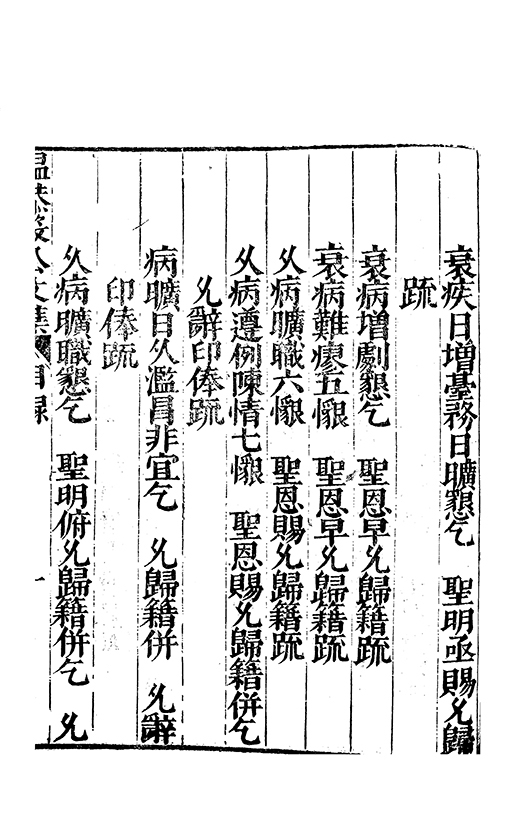 衰疾日增臺務日曠懇乞　聖明亟賜允歸
疏
衰病增劇懇乞　聖恩早允歸籍疏
衰病難瘳五懇　聖恩早允歸籍疏
久病曠職六懇　聖恩賜允歸籍疏
久病遵例陳情七懇　聖恩賜允歸籍併乞
允辭印俸疏
病曠日久濫冒非宜乞　允歸籍併　允辭
印俸疏
久病曠職懇乞　聖明俯允歸籍併乞　允
溫恭毅公文集　目錄